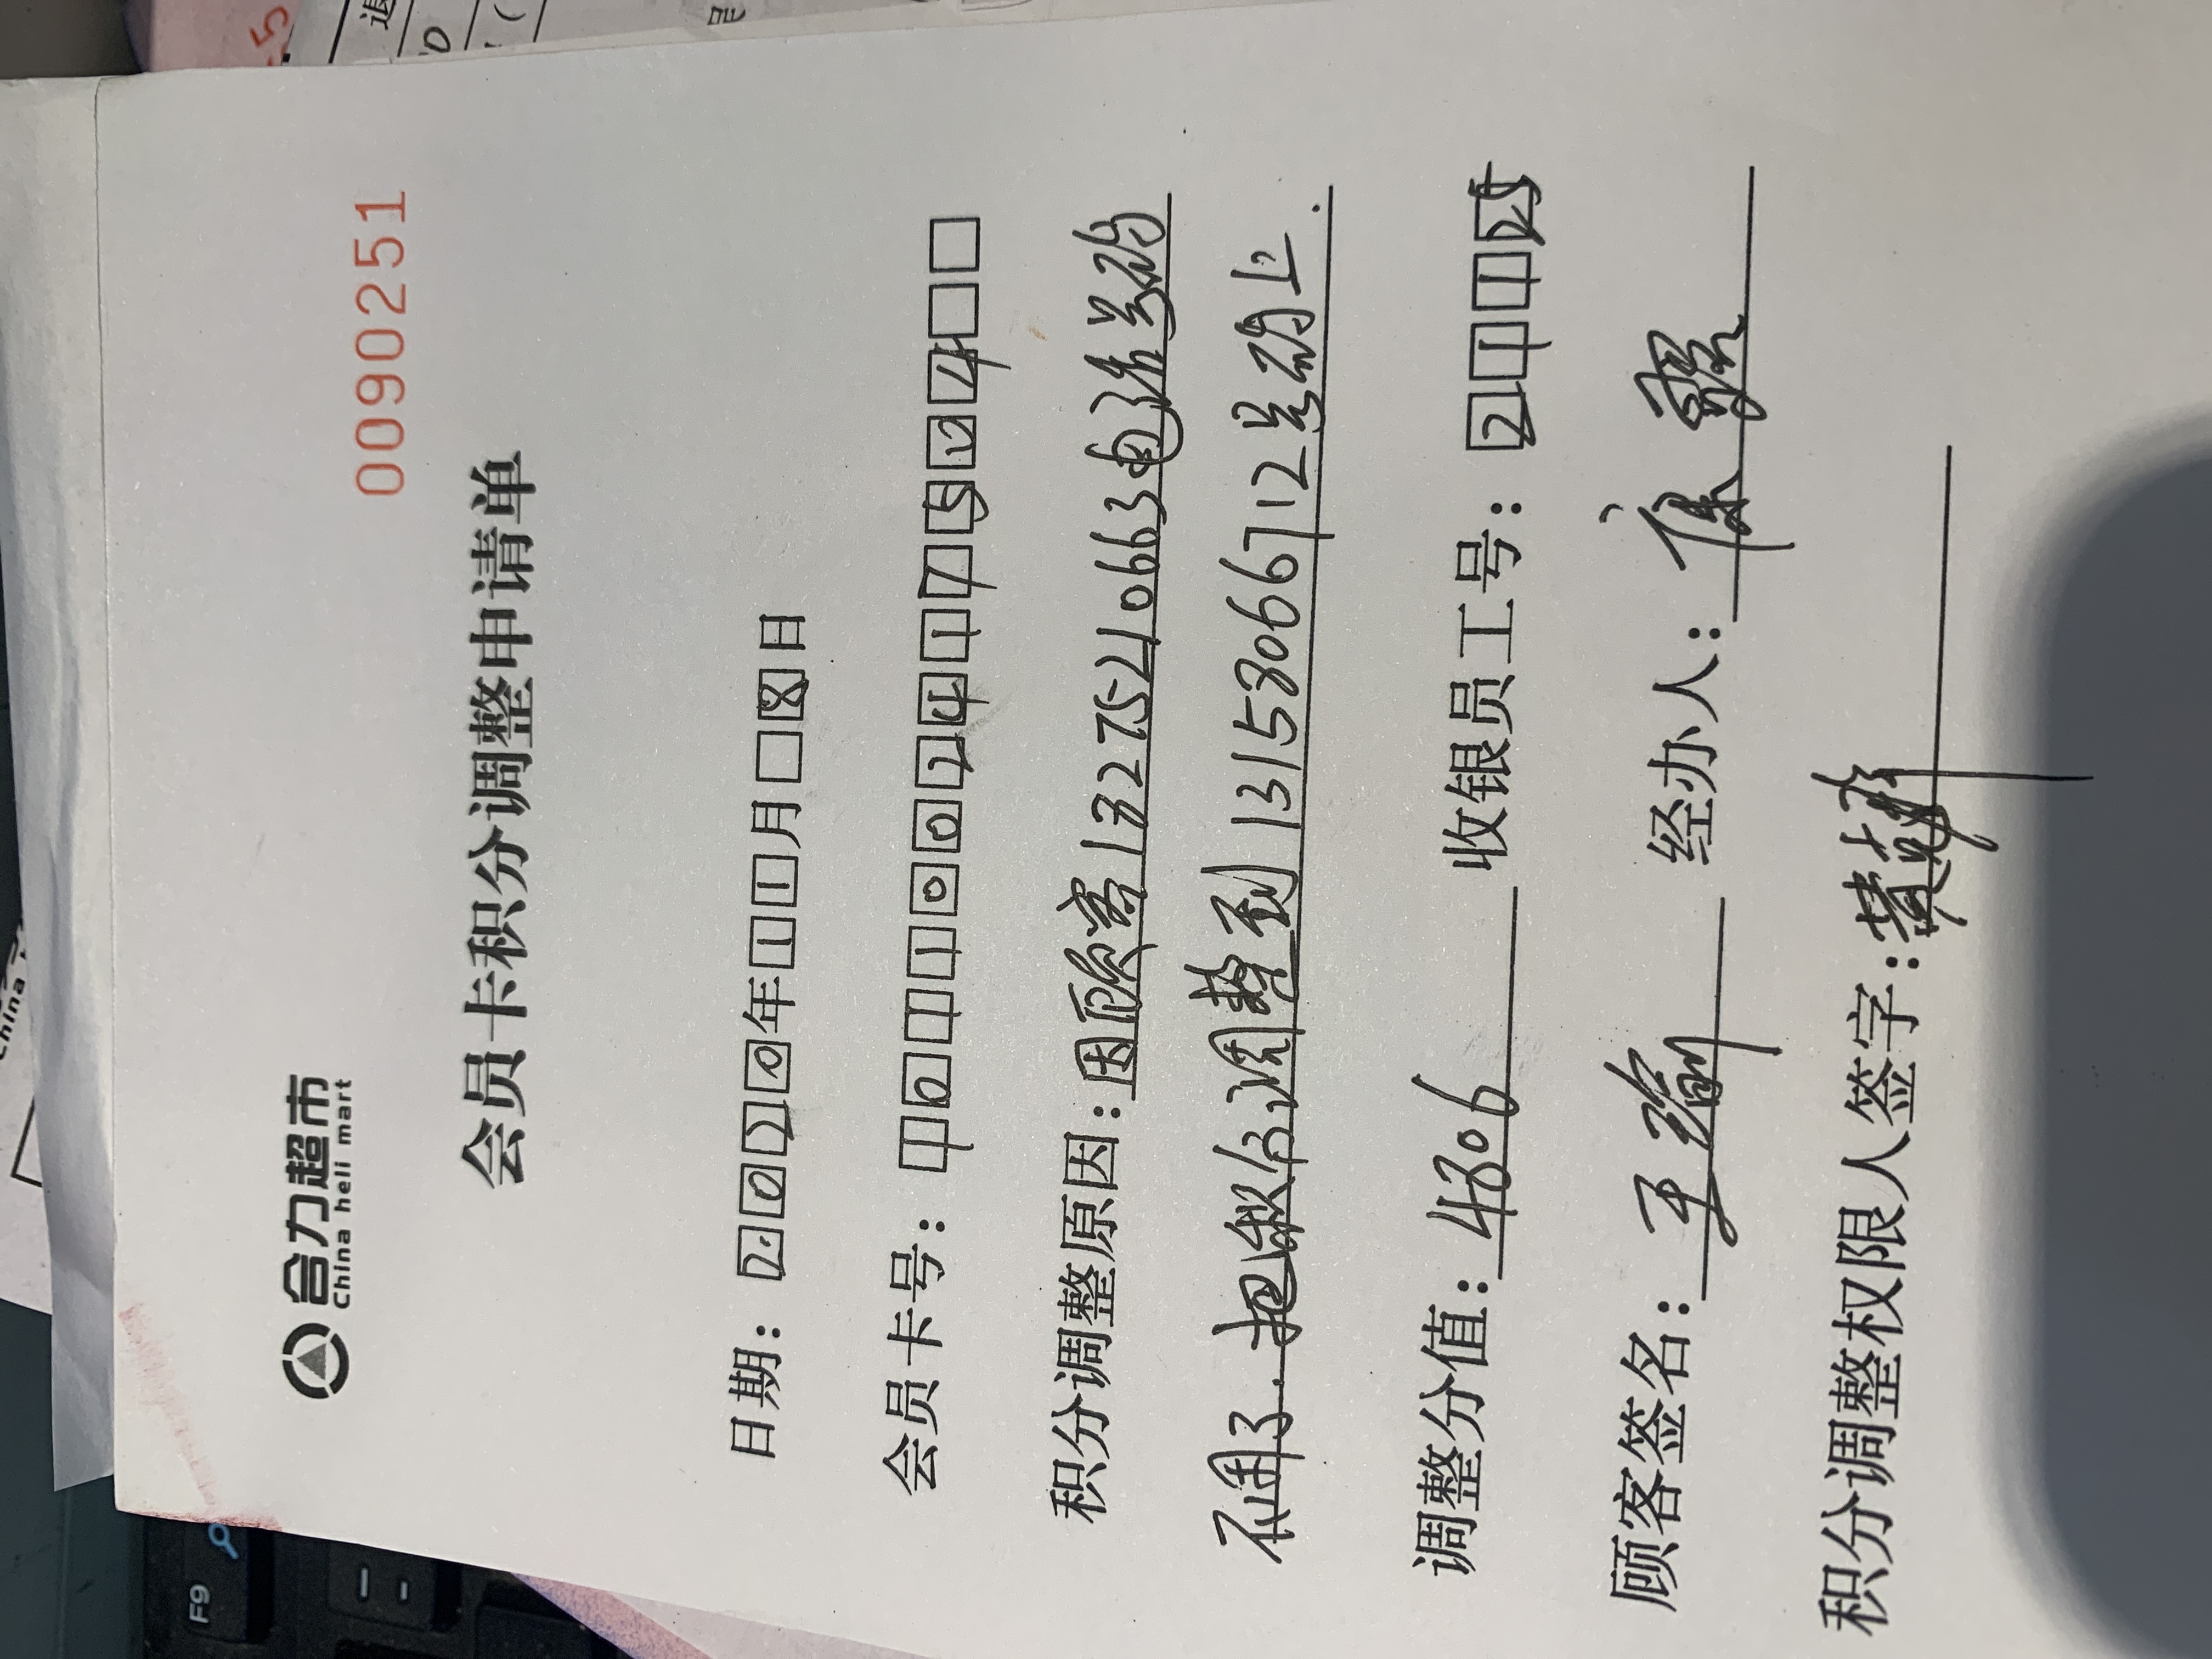 合力超市
China heli mart
0090251
会员卡积分调整申请单
日期：2020年11月8日
会员卡号：1011002417524
积分调整原因：因顾客13275210663电话号码
不用了.把积分调整到13158066712号码上.
调整分值：4806 收银员工号：211125
顾客签名：王 经办人：
积分调整权限人签字：黄
F9